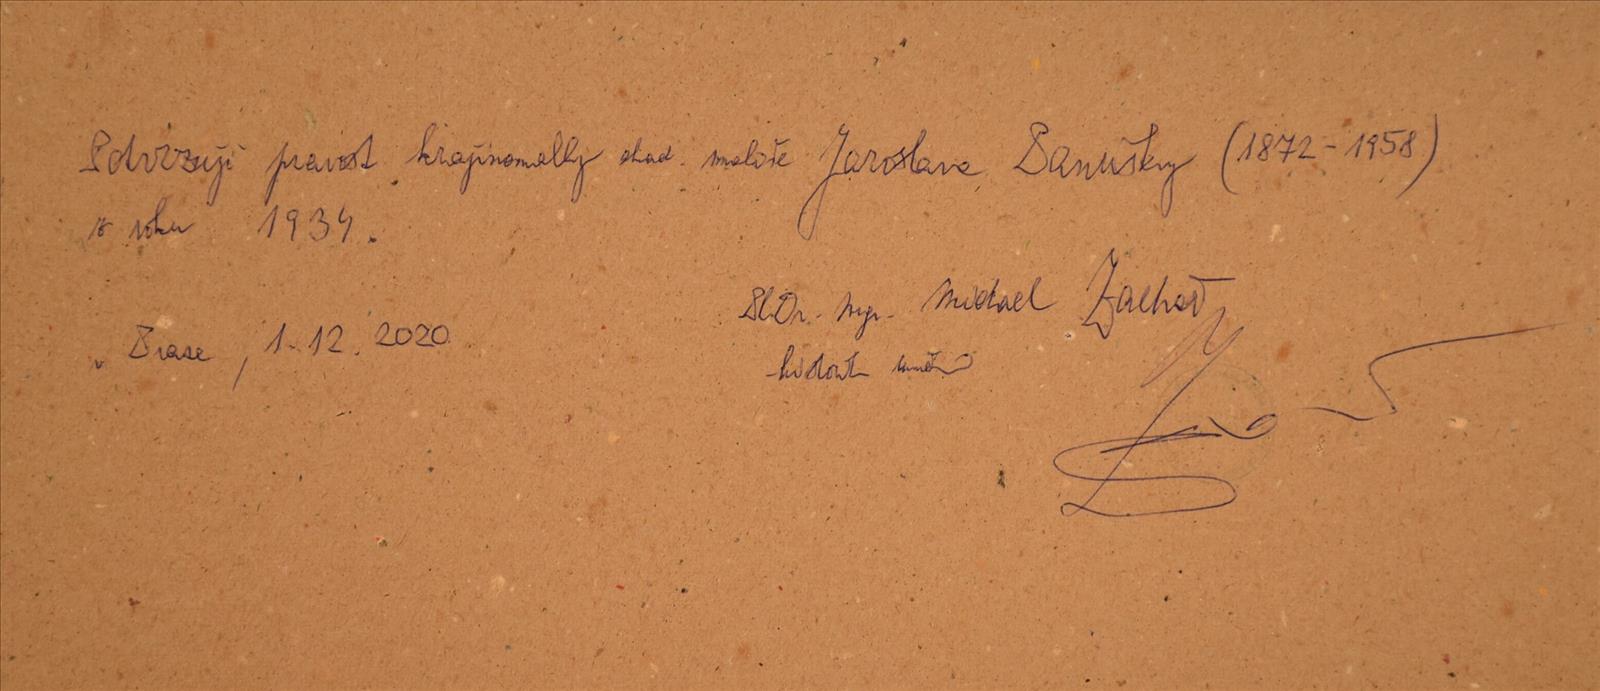 Potvrzuji pravost krajinomalby akad. malíře Jaroslava Panušky (1872-1958)
z roku 1934.
PhDr. Mgr. Michael Zachař
historik umění
v Praze, 1.12.2020